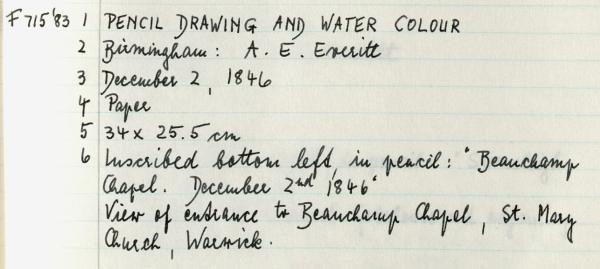 F 715 '83 1 PENCIL DRAWING AND WATER COLOUR
2 Birmingham: A. E. Everitt
3 December 2, 1846
4 Paper
5 34 x 25.5 cm
6 Inscribed bottom left, in pencil: "Beauchamp
Chapel. December 2nd 1846"
View of entrance to Beauchamp Chapel, St. Mary
Church, Warwick.